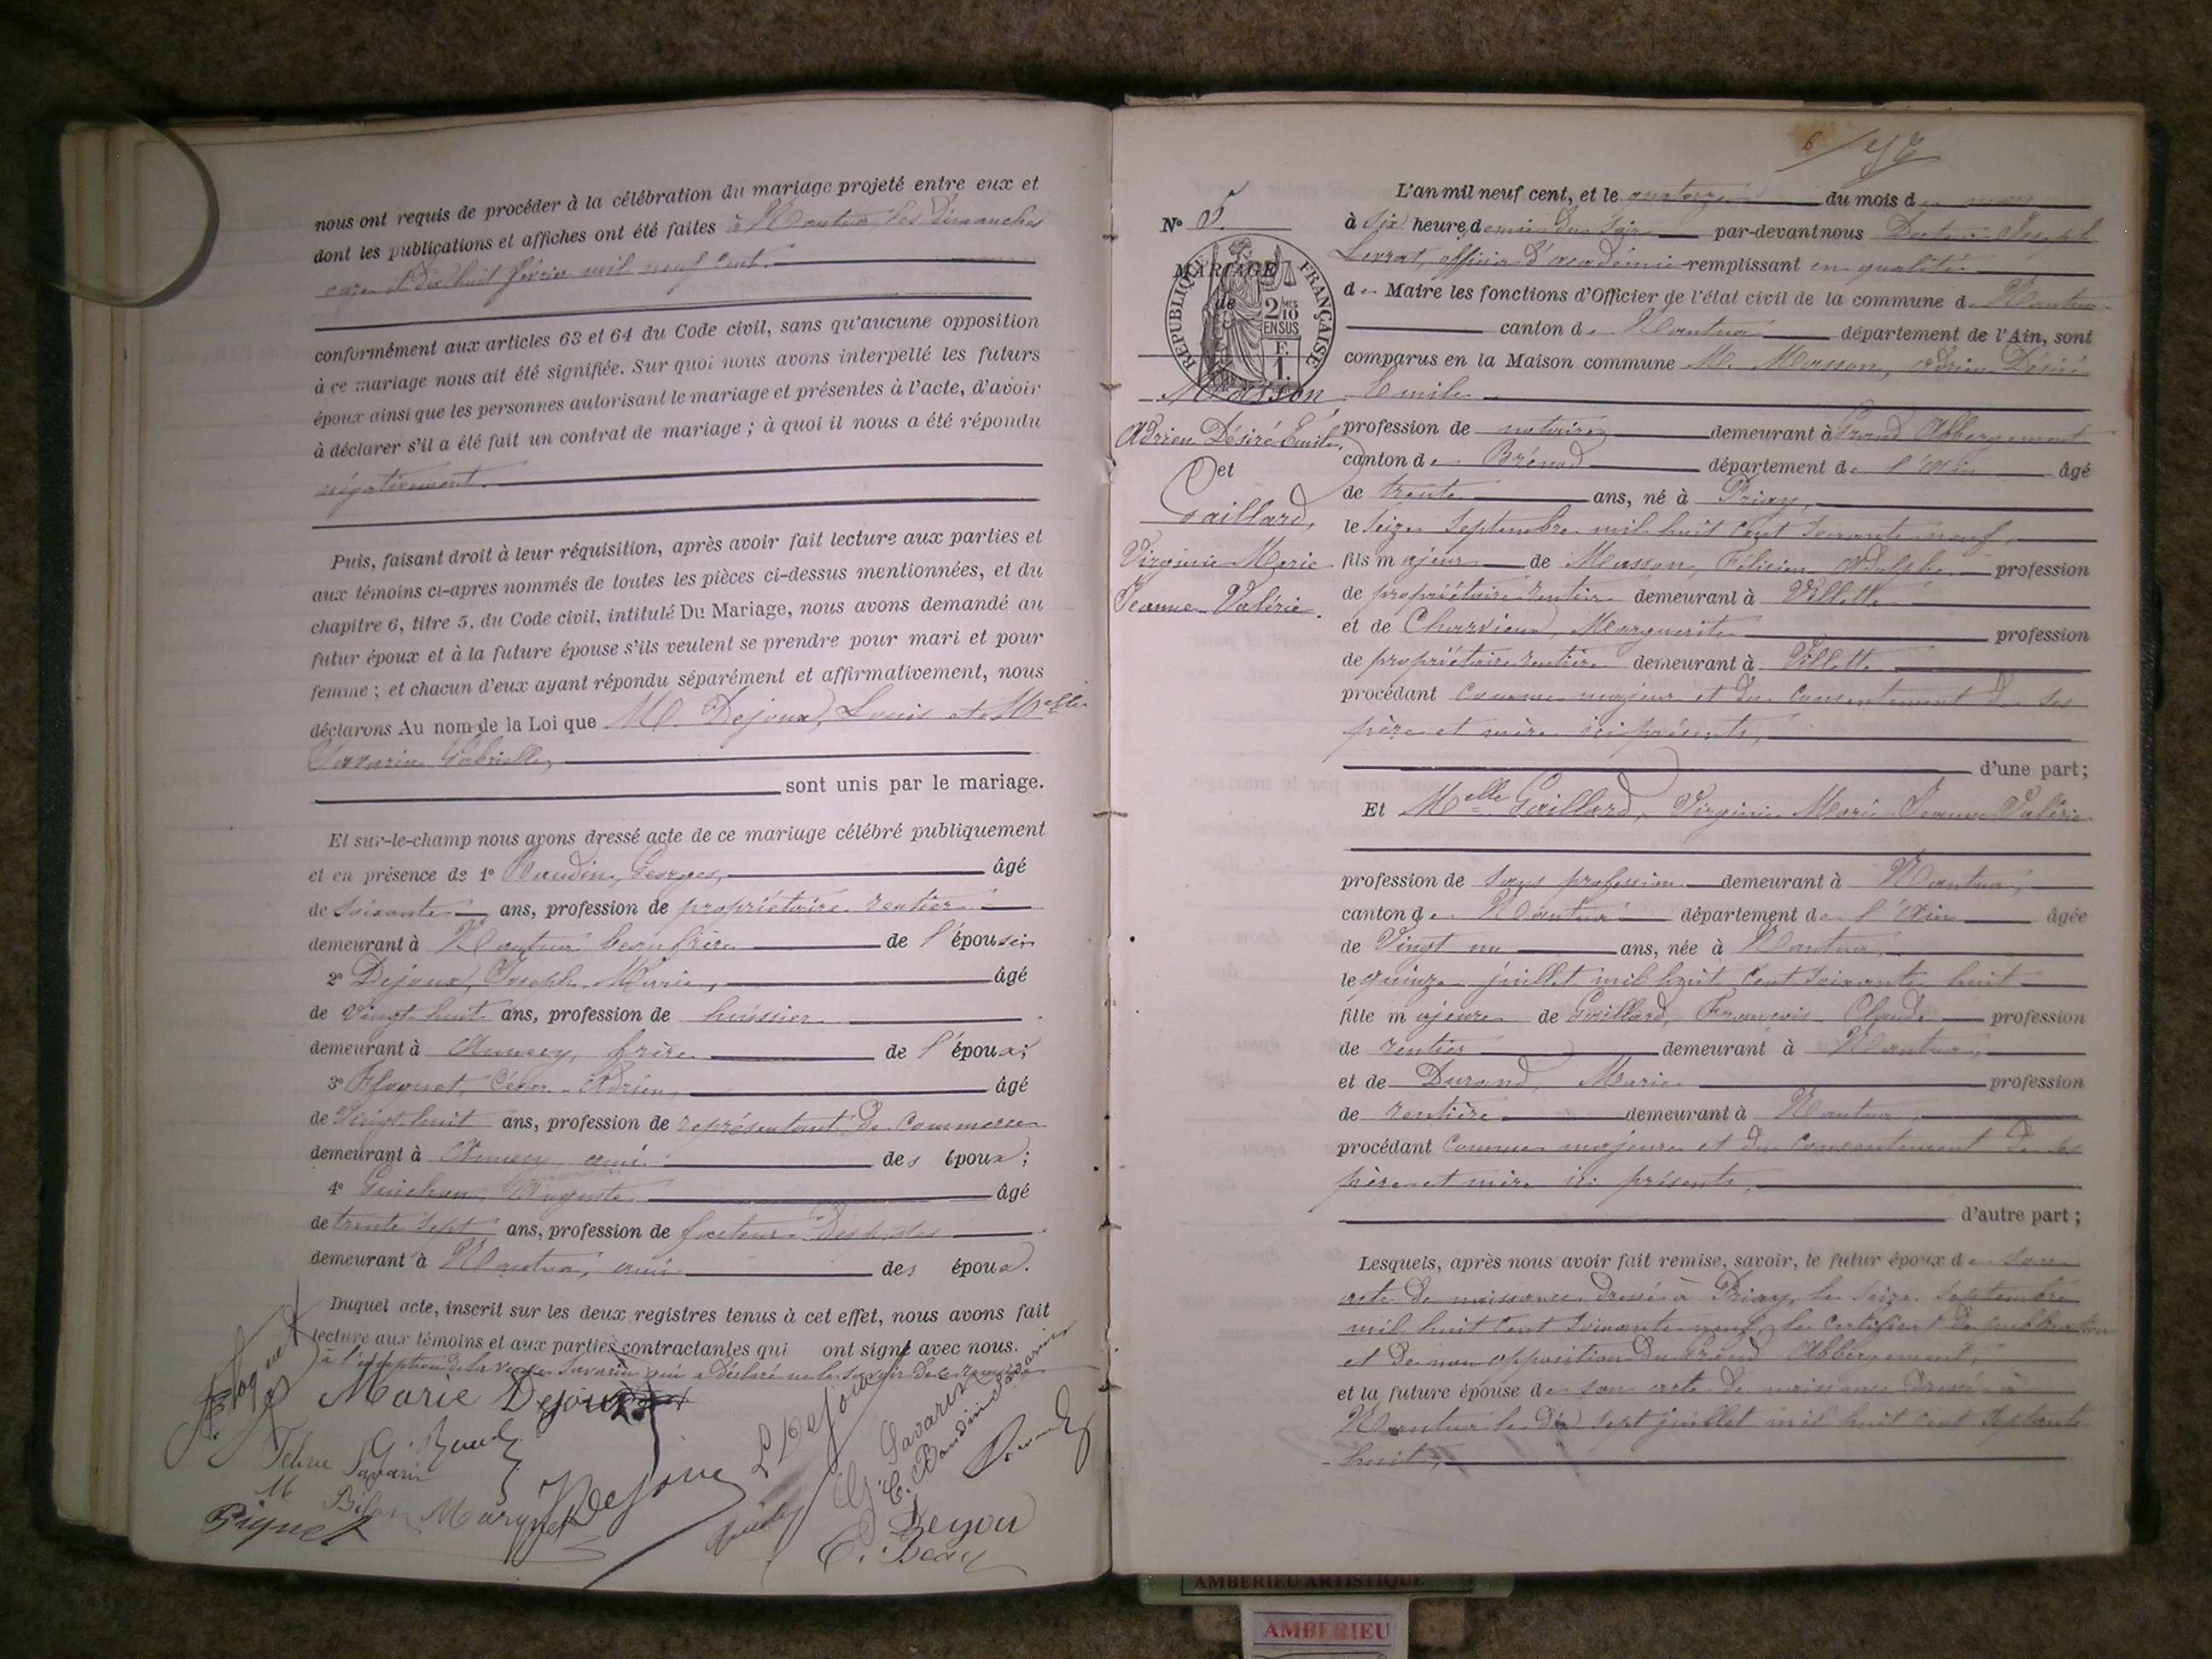 nous ont requis de procéder à la célébration du mariage projeté entre eux et
dont les publications et affiches ont été faites à Nantua, les Dimanches
onze et Dix huit février mil neuf cent.
conformément aux articles 63 et 64 du Code civil, sans qu'aucune opposition
à ce mariage nous ait été signifiée. Sur quoi nous avons interpellé les futurs
époux ainsi que les personnes autorisant le mariage et présentes à l'acte, d'avoir
à déclarer s'il a été fait un contrat de mariage ; à quoi il nous a été répondu
négativement.
Puis, faisant droit à leur réquisition, après avoir fait lecture aux parties et
aux témoins ci-apres nommés de toutes les pièces ci-dessus mentionnées, et du
chapitre 6, titre 5, du Code civil, intitulé Du Mariage, nous avons demandé au
futur époux et à la future épouse s'ils veulent se prendre pour mari et pour
femme ; et chacun d'eux ayant répondu séparément et affirmativement, nous
déclarons Au nom de la Loi que M. Dejoux, Louis et Melle
Savarin Gabrielle,
sont unis par le mariage.
Et sur-le-champ nous avons dressé acte de ce mariage célébré publiquement
et en présence de 1° Baudin, Georges, âgé
de soixante ans, profession de propriétaire rentier
demeurant à Nantua beau frère de l'épouse;
2° Dejoux, Joseph Marie, âgé
de vingt huit ans, profession de huissier
demeurant à Annecy, frère de l'époux;
3° Floquet, César Adrien, âgé
de vingt huit ans, profession de représentant de commerce
demeurant à Annecy, ami des époux;
4° Guichon, Auguste âgé
de trente sept ans, profession de facteur des postes
demeurant à Nantua, ami des époux.
Duquel acte, inscrit sur les deux registres tenus à cet effet, nous avons fait
lecture aux témoins et aux parties contractantes qui ont signé avec nous.
à l'exception de la veuve Savarin qui a déclaré ne le savoir de ce requise
Floquet
Marie Dejoux
G. Baudin
L Dejoux
G. Savarin
C. Baudin
Savarin
M
Piquet
Marquet
Dejoux
Dejou
C. Beau
6
N° 5
MARIAGE
de
RÉPUBLIQUE FRANÇAISE
2 MES 10 EN SUS
F. 1.
Masson
Adrien Désiré Emile
et
Gaillard,
Virginie Marie
Jeanne Valérie.
L'an mil neuf cent, et le quatorze du mois de mars
à six heures demie du soir par-devant nous Docteur Joseph
Lerrat, officier d'académie remplissant en qualité
de Maire les fonctions d'Officier de l'état civil de la commune de Nantua
canton de Nantua département de l'Ain, sont
comparus en la Maison commune M. Masson, Adrien Désiré
Emile
profession de notaire demeurant à Grand Abbergement
canton de Brénod département de l'Ain âgé
de trente ans, né à Priay,
le seize septembre mil huit cent soixante neuf,
fils majeur de Masson, Félicien Adolphe profession
de propriétaire rentier demeurant à Villette
et de Charvieux, Marguerite profession
de propriétaire rentière demeurant à Villette
procédant comme majeur et du consentement de ses
père et mère ici présents,
d'une part;
Et Melle Gaillard, Virginie Marie Jeanne Valérie
profession de sans profession demeurant à Nantua,
canton de Nantua département de l'Ain âgée
de vingt un ans, née à Nantua,
le quinze juillet mil huit cent soixante huit
fille majeure de Gaillard, François Claude profession
de rentier demeurant à Nantua,
et de Durand, Marie profession
de rentière demeurant à Nantua,
procédant comme majeure et du consentement de ses
père et mère ici présents,
d'autre part ;
Lesquels, après nous avoir fait remise, savoir, le futur époux de son
acte de naissance dressé à Priay, le seize septembre
mil huit cent soixante neuf, le certificat de publication
et de non opposition du Grand Abbergement,
et la future épouse de son acte de naissance dressé à
Nantua le dix sept juillet mil huit cent septante
huit,
AMBERIEU ARTISTIQUE
AMBERIEU